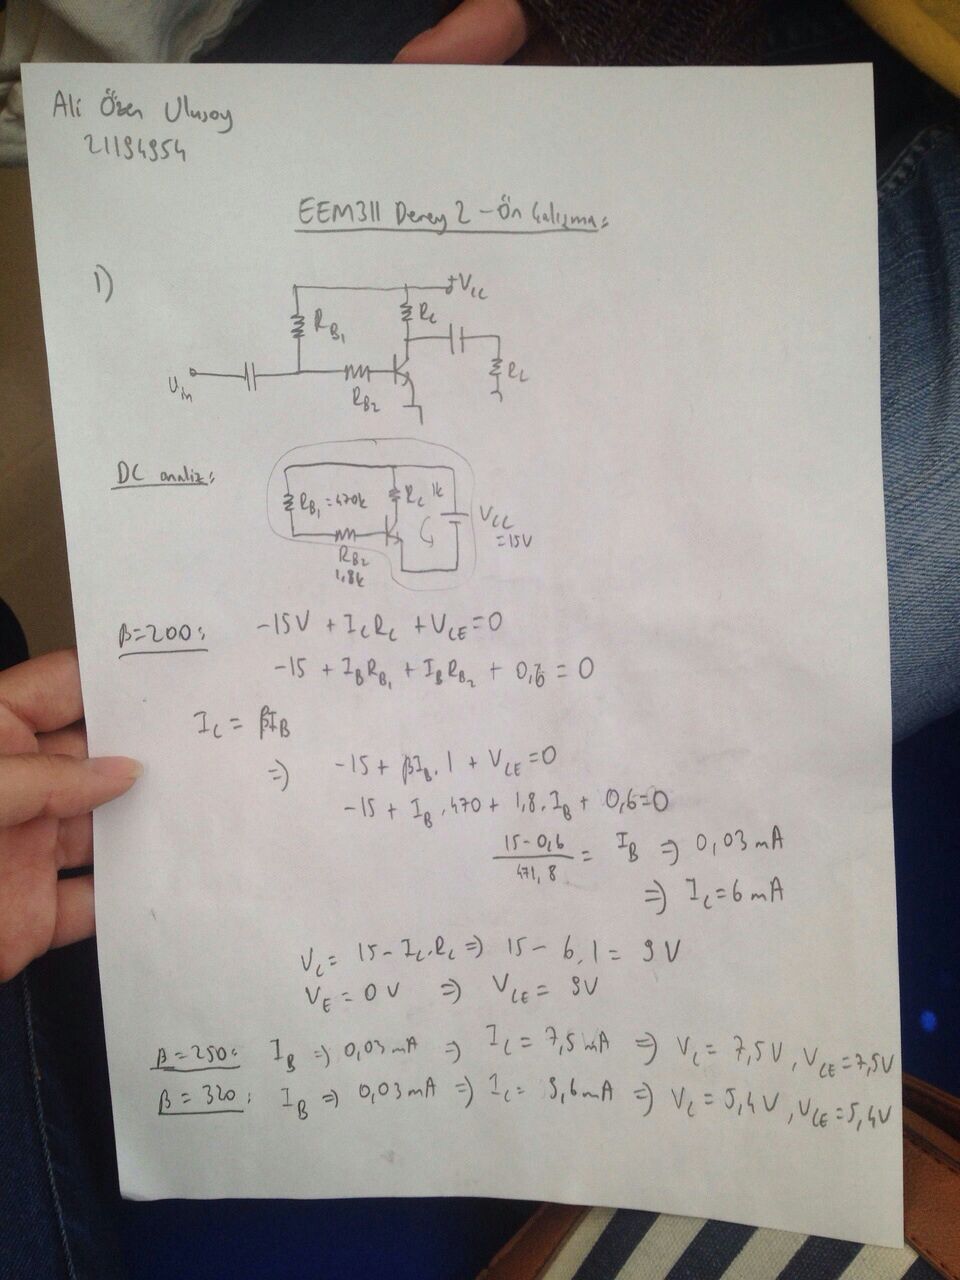 Ali Özen Ulusoy
21194954
EEM311 Deney 2 - Ön Çalışma:
1)
+VCC
RB1
RC
Uin
RB2
RL
DC analiz:
RB1 = 470k
RC 1k
VCC = 15V
RB2 1,8k
β=200: -15V + ICRC + VCE = 0
-15 + IBRB1 + IBRB2 + 0,6 = 0
IC = βIB
⇒ -15 + βIB.1 + VCE = 0
-15 + IB.470 + 1,8.IB + 0,6=0
15-0,6 / 471,8 = IB ⇒ 0,03 mA
⇒ IC = 6 mA
VC = 15 - IC.RC ⇒ 15 - 6.1 = 9 V
VE = 0 V ⇒ VCE = 9V
β=250: IB ⇒ 0,03 mA ⇒ IC = 7,5 mA ⇒ VC = 7,5V, VCE = 7,5V
β = 320: IB ⇒ 0,03 mA ⇒ IC = 9,6 mA ⇒ VC = 5,4 V, VCE = 5,4V